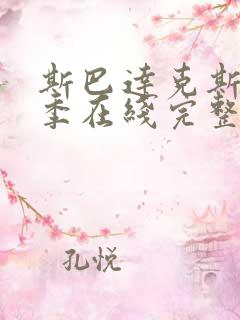 斯巴达克斯
季在线完整
孔悦